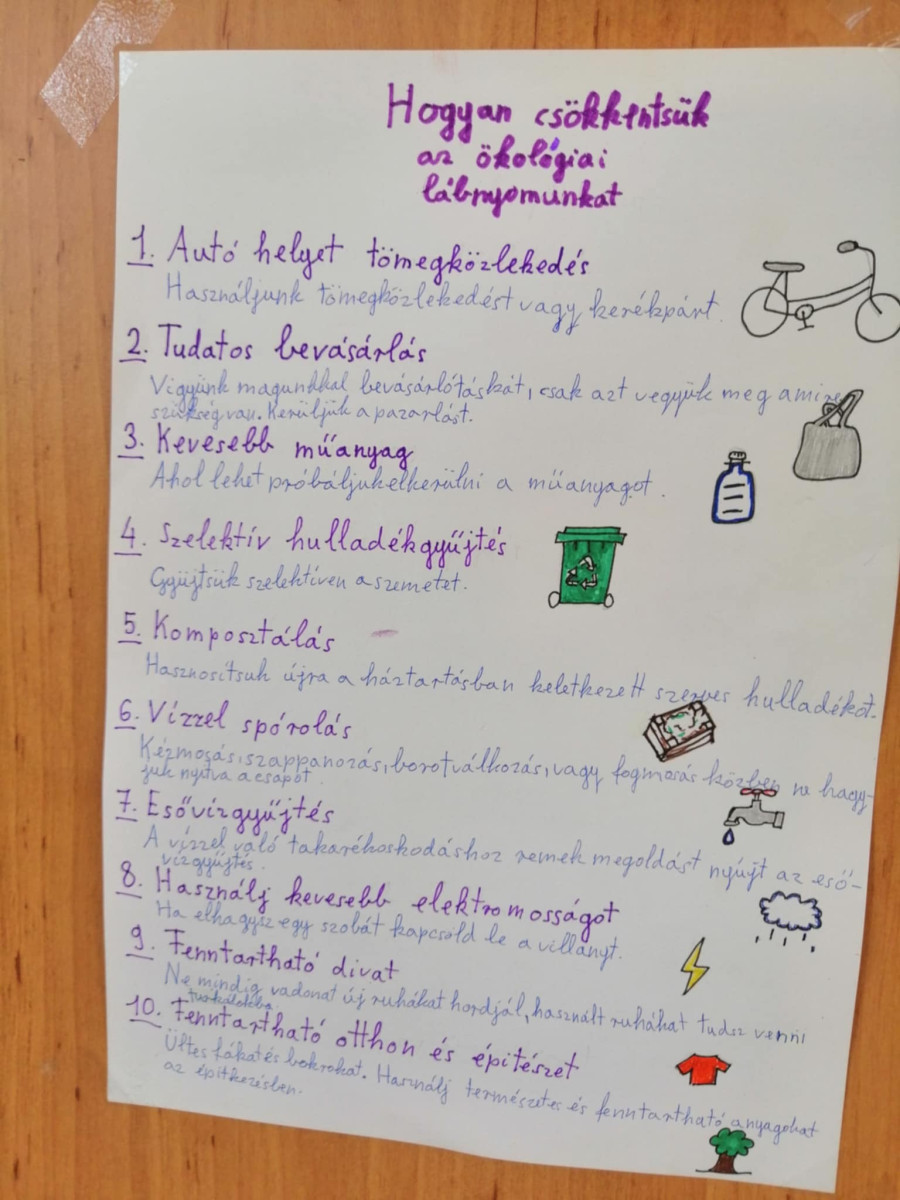 Hogyan csökkentsük
az ökológiai
lábnyomunkat
1. Autó helyet tömegközlekedés
Használjunk tömegközlekedést vagy kerékpárt.
2. Tudatos bevásárlás
Vigyünk magunkkal bevásárlótáskát, csak azt vegyük meg amire
szükség van. Kerüljük a pazarlást.
3. Kevesebb műanyag
Ahol lehet próbáljuk elkerülni a műanyagot.
4. Szelektív hulladékgyűjtés
Gyűjtsük szelektíven a szemetet.
5. Komposztálás
Hasznosítsuk újra a háztartásban keletkezett szerves hulladékot.
6. Vízzel spórolás
Kézmosás, szappanozás, borotválkozás, vagy fogmosás közben ne hagy-
juk nyitva a csapot.
7. Esővízgyűjtés
A vízzel való takarékoskodáshoz remek megoldást nyújt az eső-
vízgyűjtés.
8. Használj kevesebb elektromosságot
Ha elhagysz egy szobát kapcsold le a villanyt.
9. Fenntartható divat
Ne mindig vadonat új ruhákat hordjál, használt ruhákat tudsz venni
turkálókba
10. Fenntartható otthon és építészet
Ültes fákat és bokrokat. Használj természetes és fenntartható anyagokat
az építkezésben.